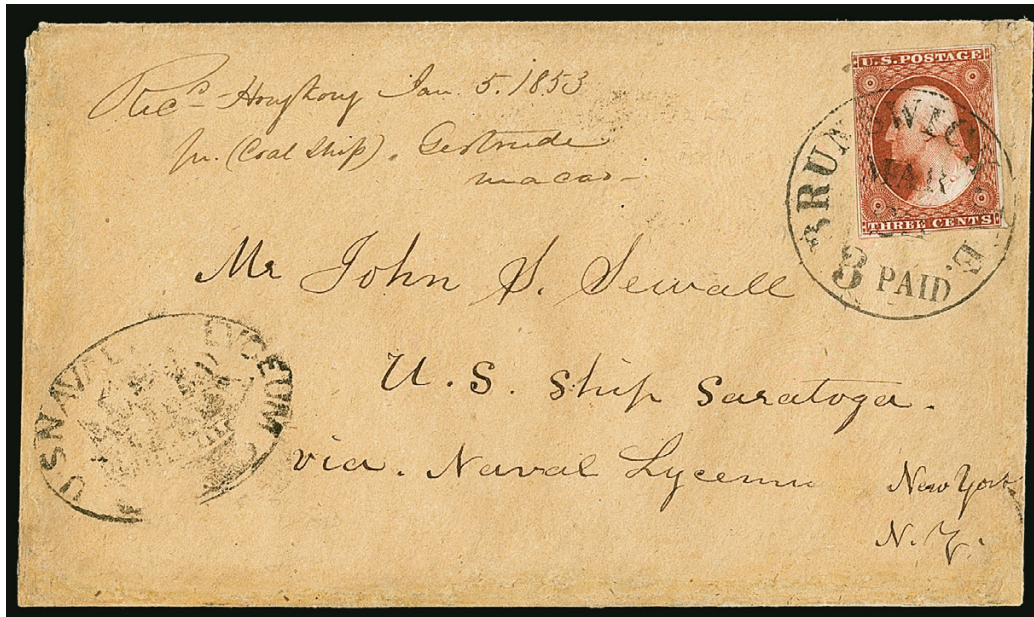 Recd Hongkong Jan. 5. 1853
pr. (Coal Ship). Gertrude
macao
U.S. POSTAGE
THREE CENTS
BRUNSWICK ME.
MAR
3 PAID
Mr John S. Sewall
U.S. Ship Saratoga.
via. Naval Lyceum
New York
N.Y.
U S NAVAL LYCEUM